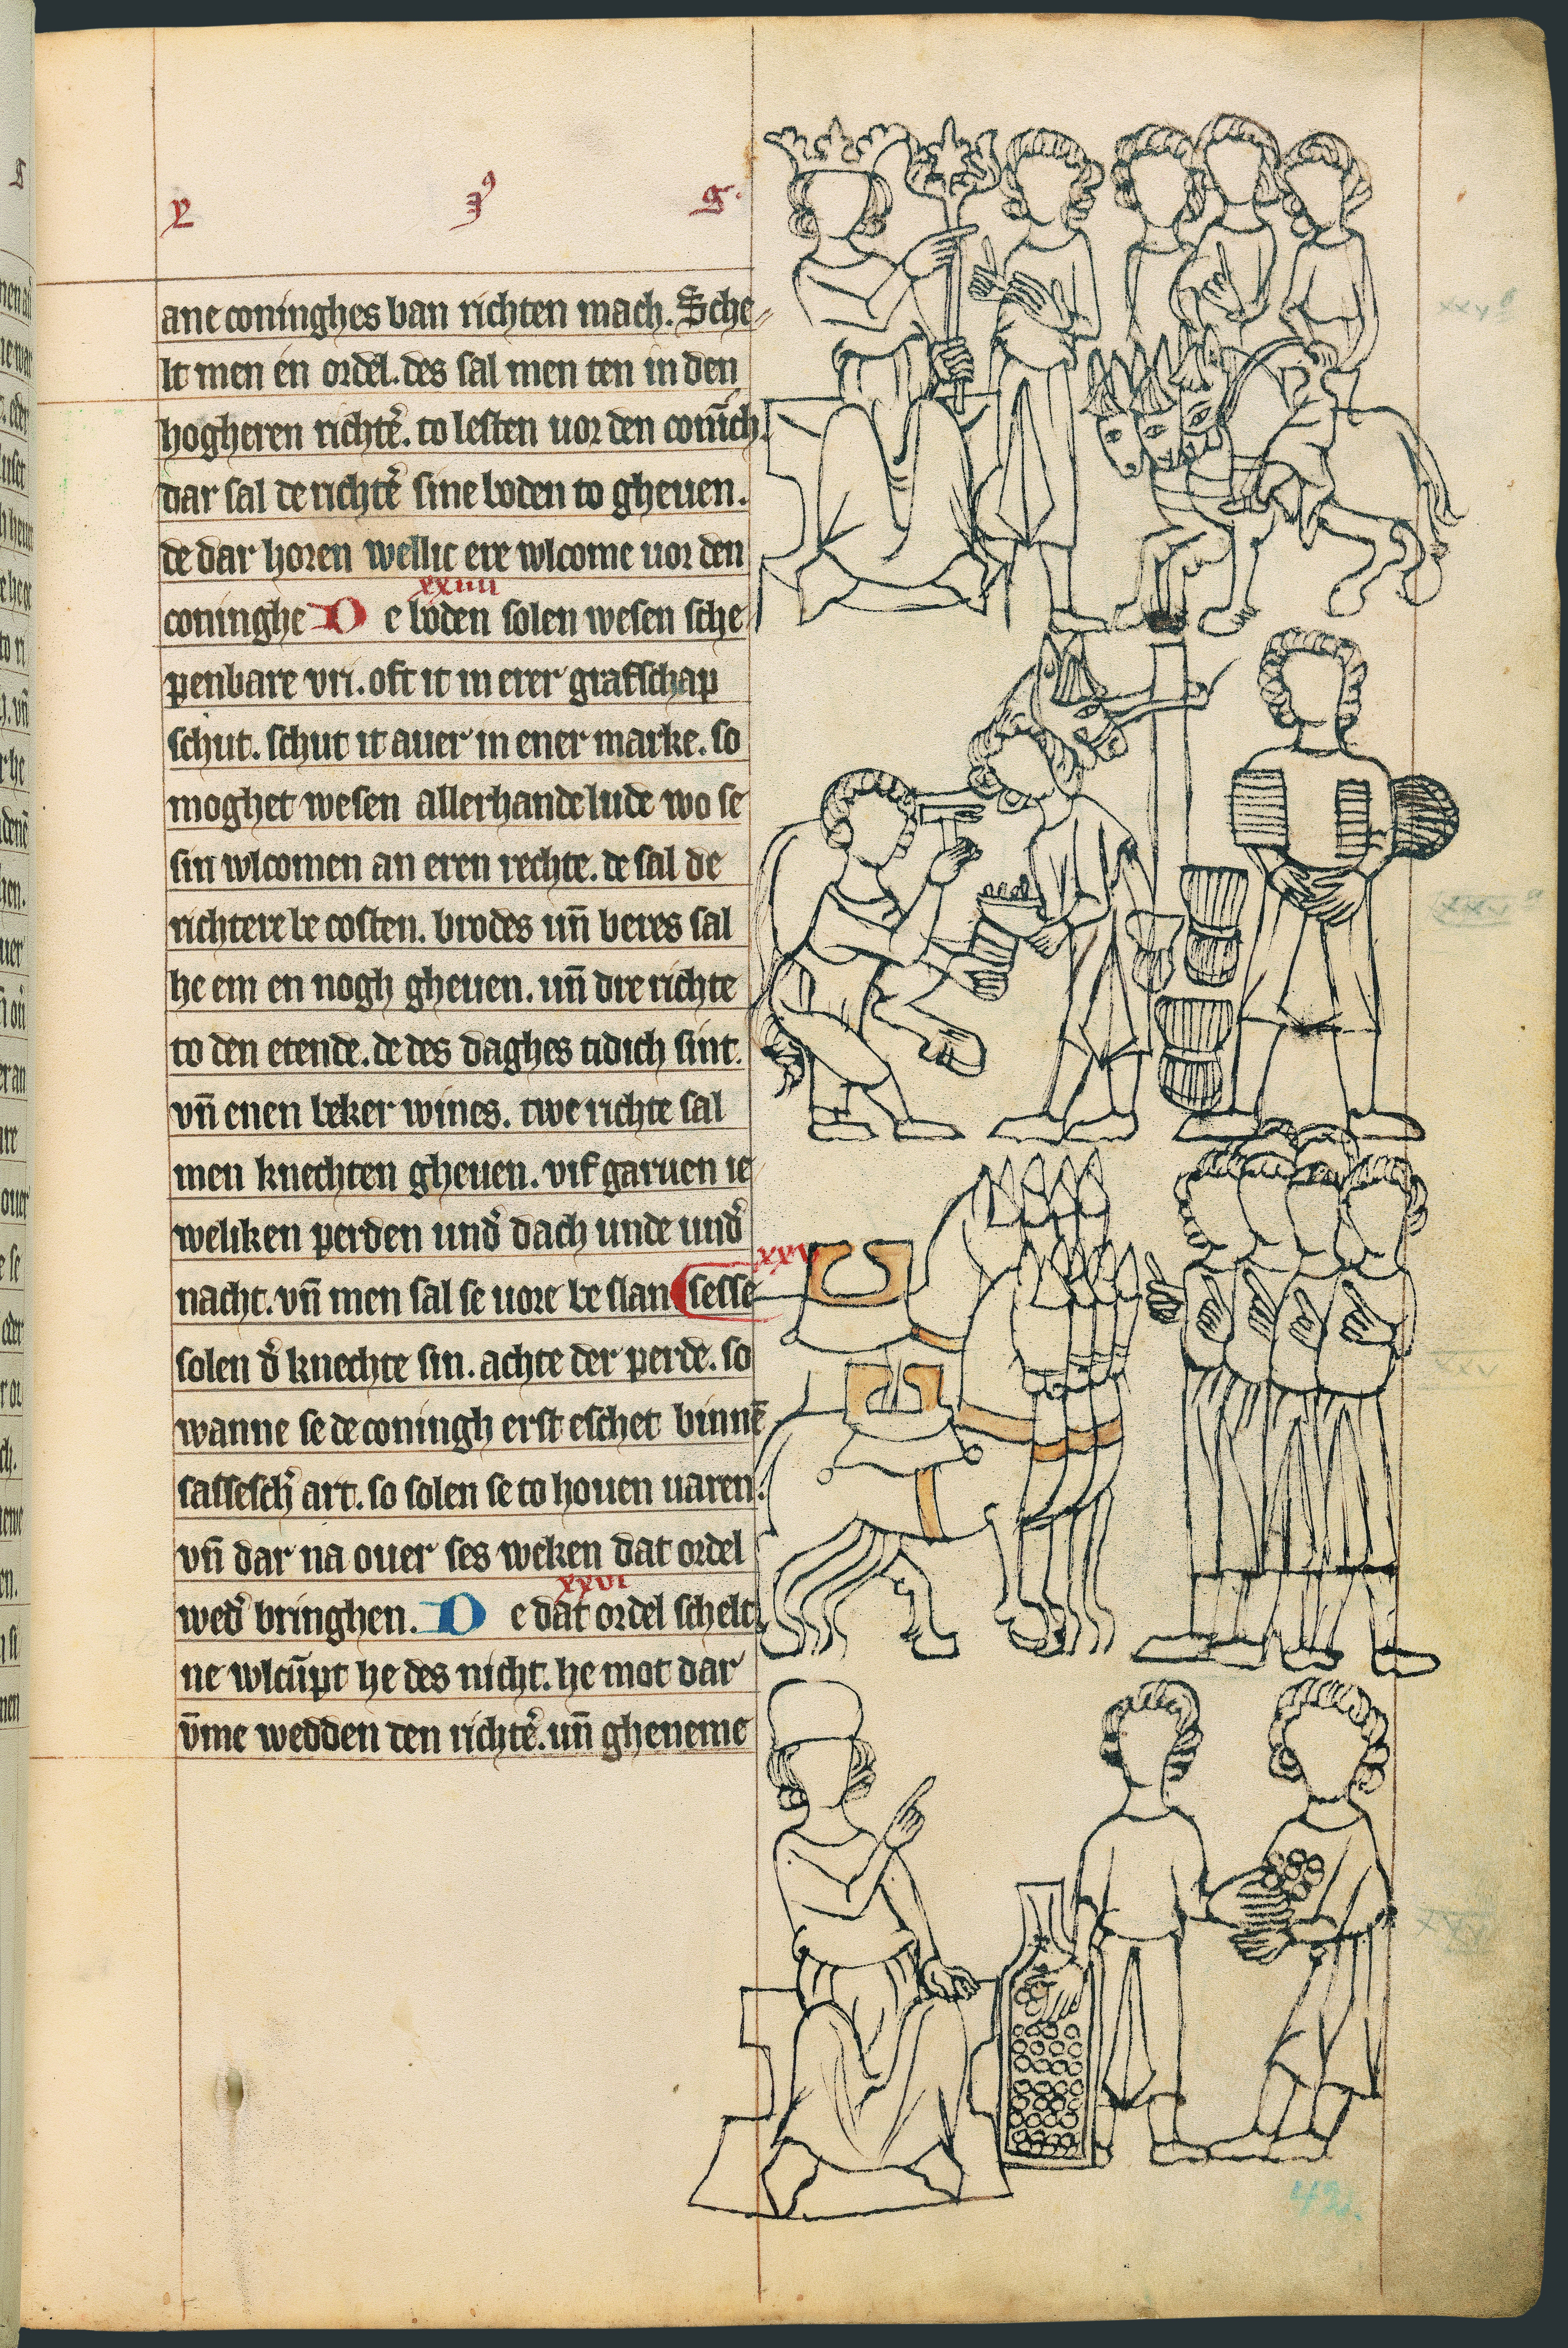 ane coninghes ban richten mach. Sche
lt men en ordel. des sal men ten in den
hogheren richtẽ. to lesten uor den conīch.
dar sal de richtẽ sine boden to gheuen.
de dar horen wellic ere wlcome uor den
xxiiii
coninghe De boden solen wesen sche
penbare vri. oft it in erer grafschap
schut. schut it auer in ener marke. so
moghet wesen allerhande lude wo se
sin wlcomen an eren rechte. de sal de
richtere be costen. brodes uñ beres sal
he em en nogh gheuen. uñ dre richte
to den etende. de des daghes tidich sint.
vñ enen beker wines. twe richte sal
men knechten gheuen. vif garuen ie
weliken perden und̉ dach unde und̉
xxv
nacht. vñ men sal se uore be slan sesse
solen d̉ knechte sin. achte der perde. so
wanne se de coningh erst eschet binnē
sassesch̉ art. so solen se to houen uaren.
vñ dar na ouer ses weken dat ordel
xxvi
wed̉ bringhen. De dat ordel schelt.
ne wlcūpt he des nicht. he mot dar
v̄me wedden ten richtẽ. uñ gheneme
xxv
42.